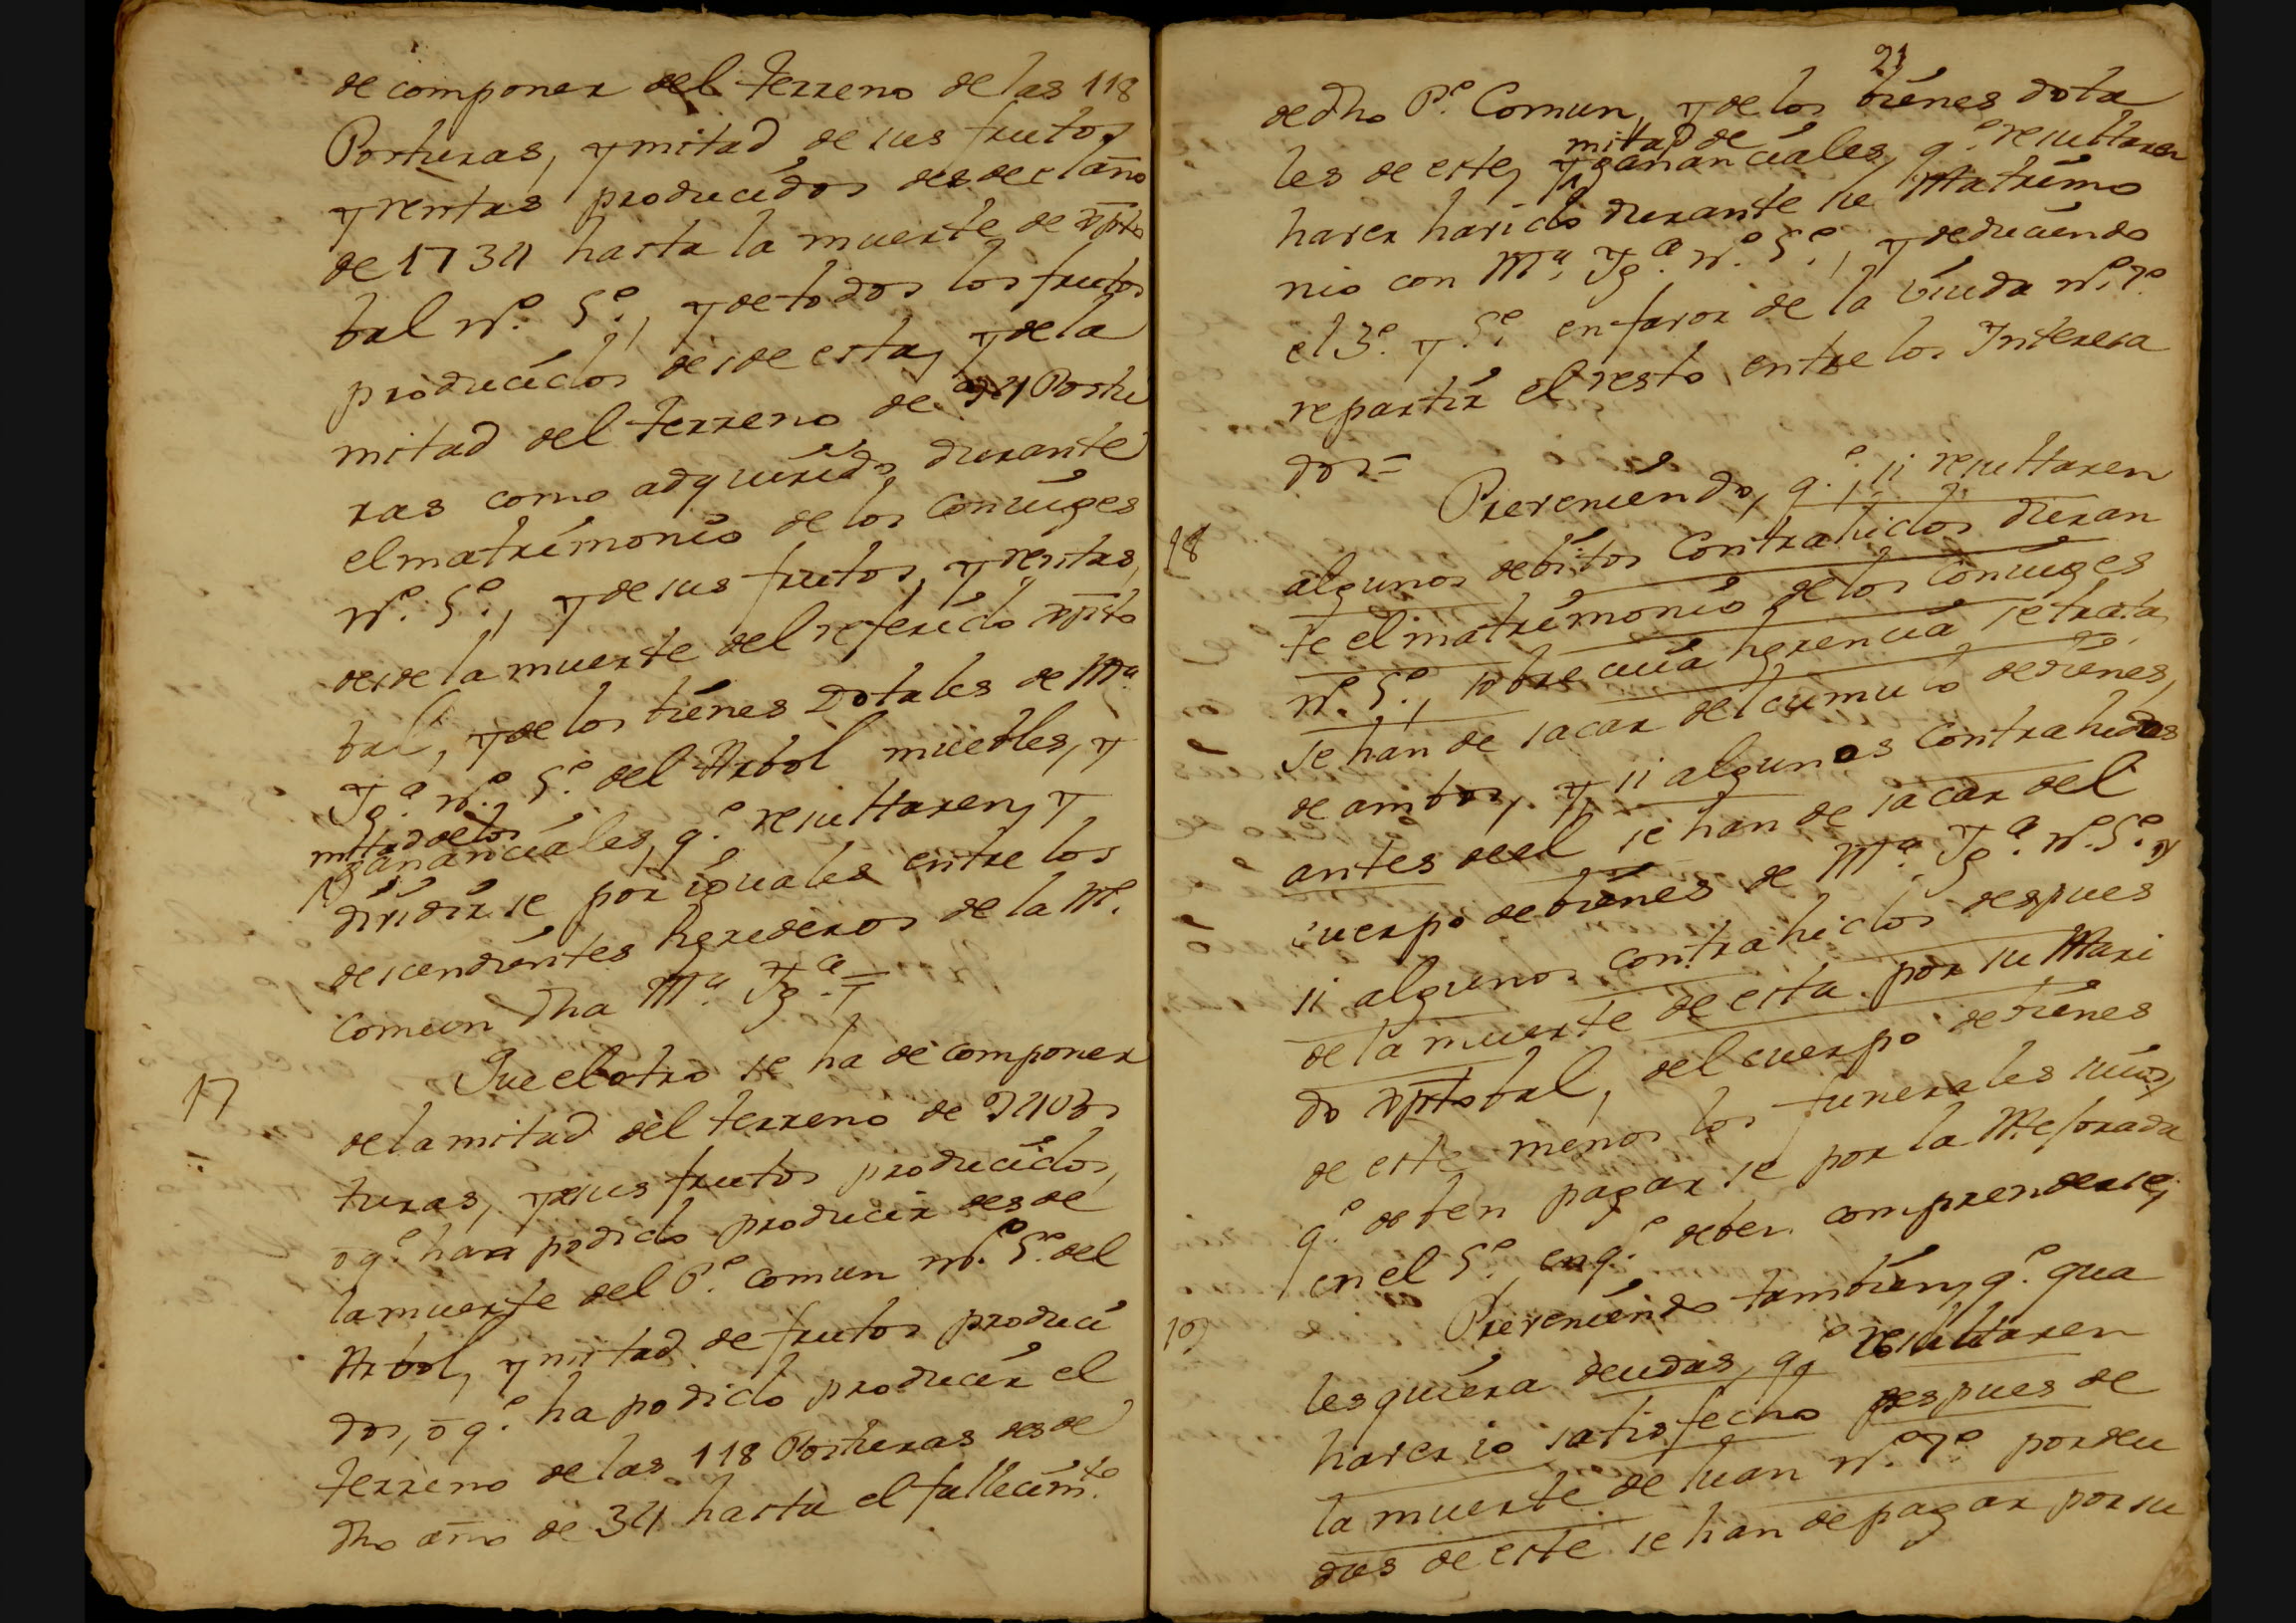 de componer del terreno de las 118
Posturas, y mitad de sus frutos
y rentas producidos desde el año
de 1734 hasta la muerte de Xpto
bal nº. 5º., y de todos los frutos
producidos desde esta, y de la
mitad del terreno de Postu
ras como adquirido durante
el matrimonio de los Conuiges
nº. 5º., y de sus frutos, y rentas,
desde la muerte del referido Xpisto
bal, y de los bienes Dotales de Mª.
Jgª. nº. 5º. del Arbol muebles, y
mitad de los
gananciales, qº. resultaren, y
dividirse por iguales entre los
descendientes herederos de la Mº.
comun dha Mª. Jgª.=
17
Que el otro se ha de componer
de la mitad del terreno de 24 Pos
turas, y sus frutos producidos,
o qº. han podido producir desde
la muerte del Pº. comun nº. 5º. del
Arbol, y mitad de frutos produci
dos, o qº. ha podido producir el
terreno de las 118 Posturas desde
dho año de 34 hasta el fallecimto.
21
de dho Pº. Comun, y de los bienes dota
mitad de
les de este, y gananciales, qº. resultaren
haver havido durante su Matrimo
nio con Mª. Jgª. nº. 5º., y deduciendo
el 3º. y 5º. en favor de la viuda nº. 7º.
repartir el resto entre los Interesa
dos=
18
Previniendo, qº. si resultaren
algunos debitos Contrahidos duran
te el matrimonio de los Conuiges
nº. 5º., sobre cuia herencia se trata,
se han de sacar del cumulo de bienes,
de ambos, y si algunos contrahidos
antes de el se han de sacar del
cuerpo de bienes de Mª. Jgª. nº. 5º. y
si algunos contrahidos despues
de la muerte de esta por su Mari
do Xptobal, del cuerpo de bienes
de este menos los funerales suios,
qº. deben pagarse por la Mejorada
en el 5º., en qº. deben comprenderse,
19
Previniendo tambien, qº. qua
lesquiera deudas, qº. resultaren
haverse satisfecho despues de
la muerte de Juan nº. 7º. por deu
das de este se han de pagar por su